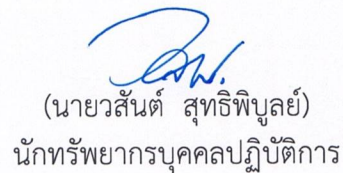 (นายวสันต์ สุทธิพิบูลย์)
นักทรัพยากรบุคคลปฏิบัติการ